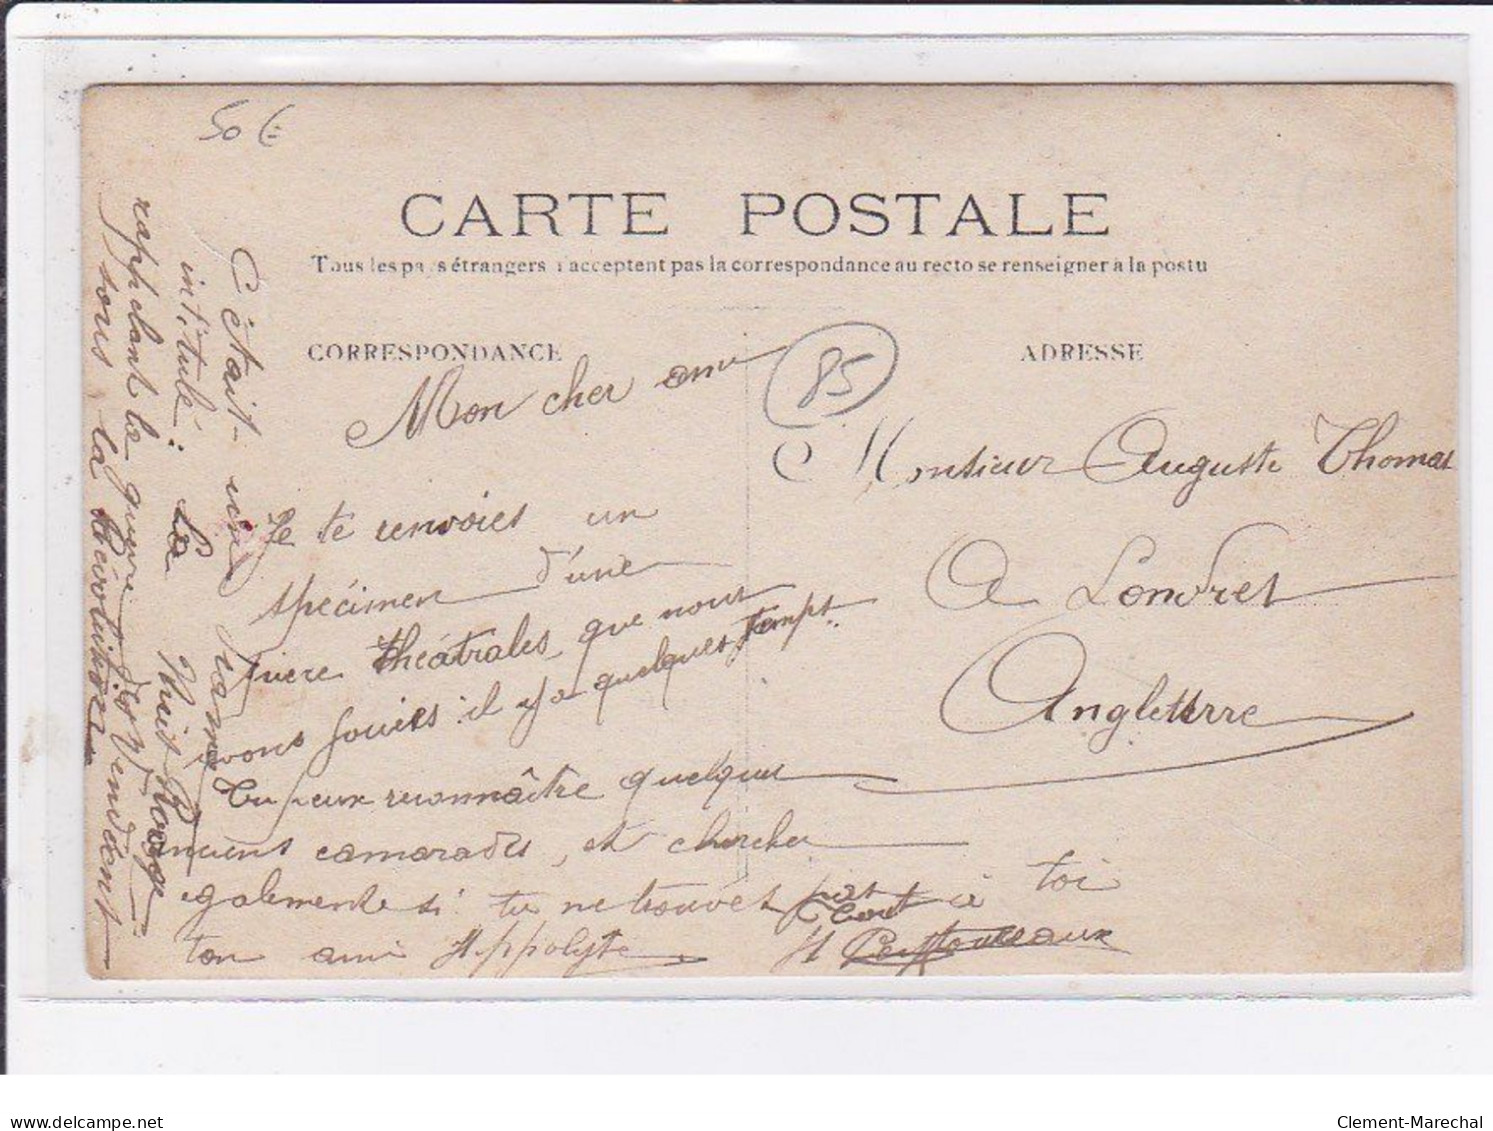 50 €
CARTE POSTALE
Tous les pays étrangers n'acceptent pas la correspondance au recto se renseigner à la poste
CORRESPONDANCE
ADRESSE
85
Mon cher ami
Je te renvoies un
spécimen d'une
pièce théâtrales que nous
avons jouiés il y a quelques temps.
Tu peux reconnaître quelques
anciens camarades, et chercher
également si tu ne trouves pas
ton ami Hippolyte
tout à toi
H
Monsieur Auguste Thomas
A Londres
Angleterre
C'était un drame
intitulé : La Nuit Rouge
rappelant la guerre des Vendéens
sous la Révolution
delcampe.net
Clement-Marechal